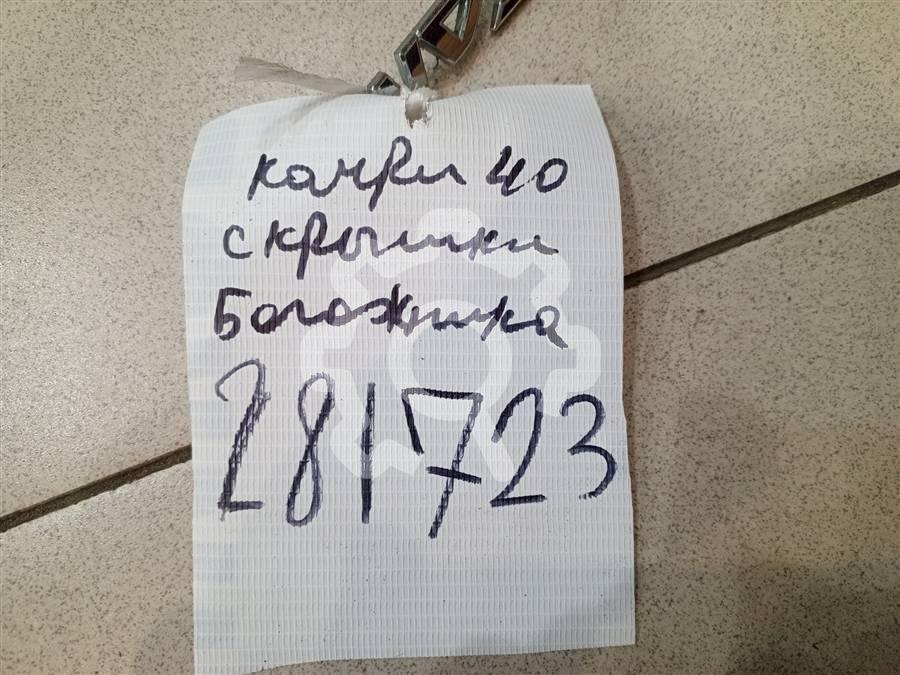 камри 40
с крышки
Богажника
281723